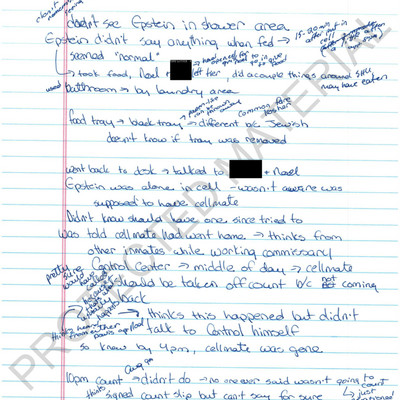 doesn't see Epstein in shower area
Epstein didn't say anything when fed → 15-20 min
seemed "normal"
→ took food, Noel left her, did a couple things around SHU
may have eaten
used bathroom → by laundry area
food tray → black tray → different b/c Jewish
common fare
kosher
doesn't know if tray was removed
went back to desk → talked to + Noel
Epstein was alone in cell - wasn't aware was
supposed to have cellmate
Didn't know should have one since tried to
was told cellmate had went home → thinks from
other inmates while working commissary
pretty sure
Control center → middle of day → cellmate
should be taken off count b/c not coming
back
→ thinks this happened but didn't
talk to Control himself
so knew by 4pm, cellmate was gone
Aug 9th
10pm count → didn't do → no one ever said wasn't going to count
→ just happened
thinks signed count slip but can't say for sure
PROTECTED MATERIAL